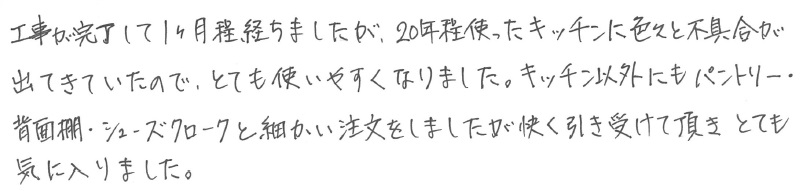 工事が完了して1ヶ月程経ちましたが、20年程使ったキッチンに色々と不具合が
出てきていたので、とても使いやすくなりました。キッチン以外にもパントリー・
背面棚・シューズクロークと細かい注文をしましたが快く引き受けて頂き とても
気に入りました。